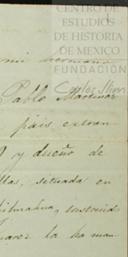 CENTRO DE
ESTUDIOS
DE HISTORIA
DE MEXICO
FUNDACIÓN
Carlos Slim
mi hermano
Pablo Martinez
pais, extran
y dueño de
llas, situada en
Chihuahua, 
la ha man